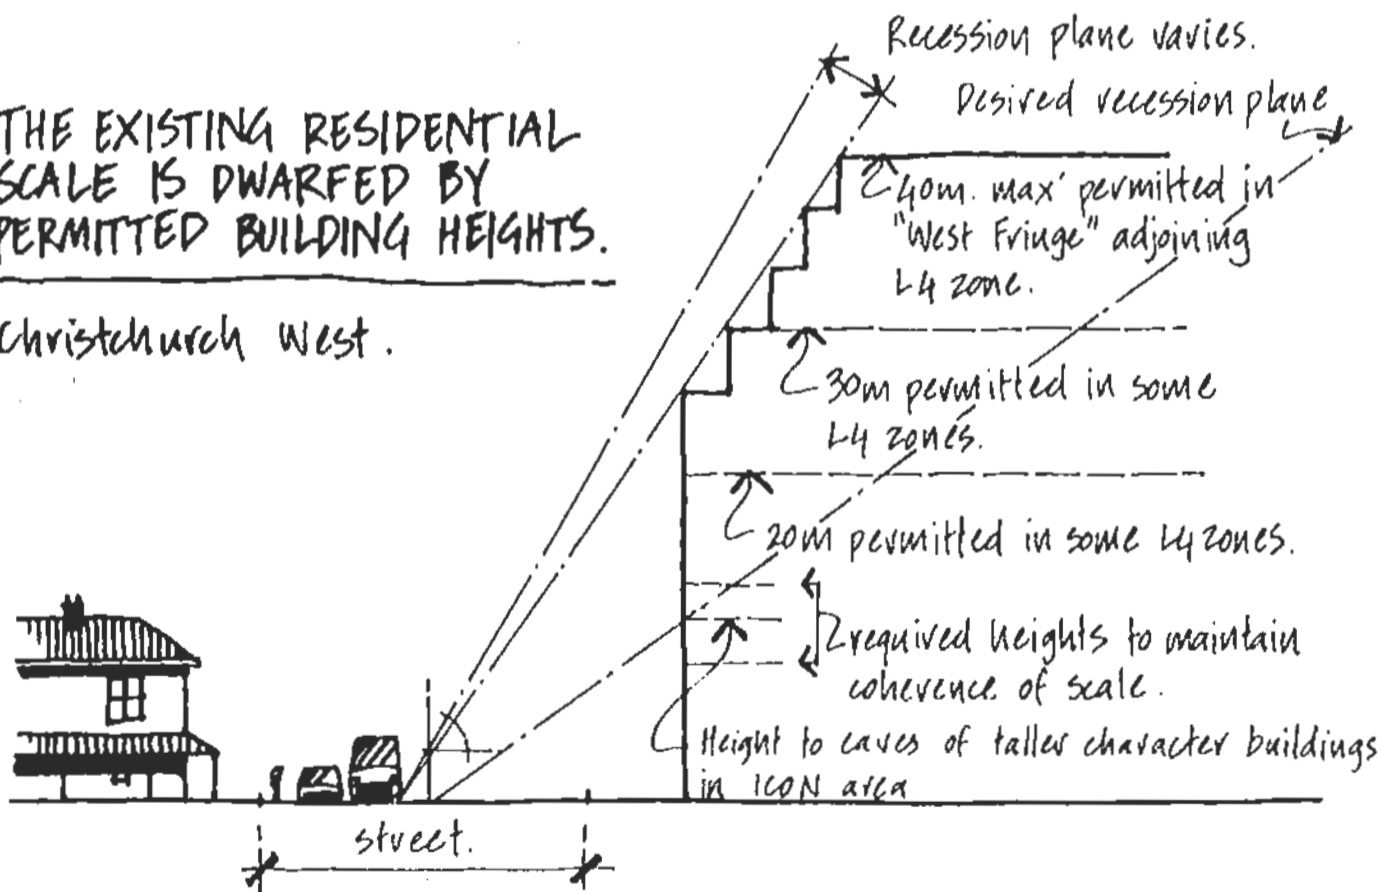 THE EXISTING RESIDENTIAL
SCALE IS DWARFED BY
PERMITTED BUILDING HEIGHTS.
Christchurch West.
Recession plane varies.
Desired recession plane
40m. max' permitted in
"West Fringe" adjoining
L4 zone.
30m permitted in some
L4 zones.
20m permitted in some L4 zones.
required heights to maintain
coherence of scale.
Height to eaves of taller character buildings
in ICON area
street.